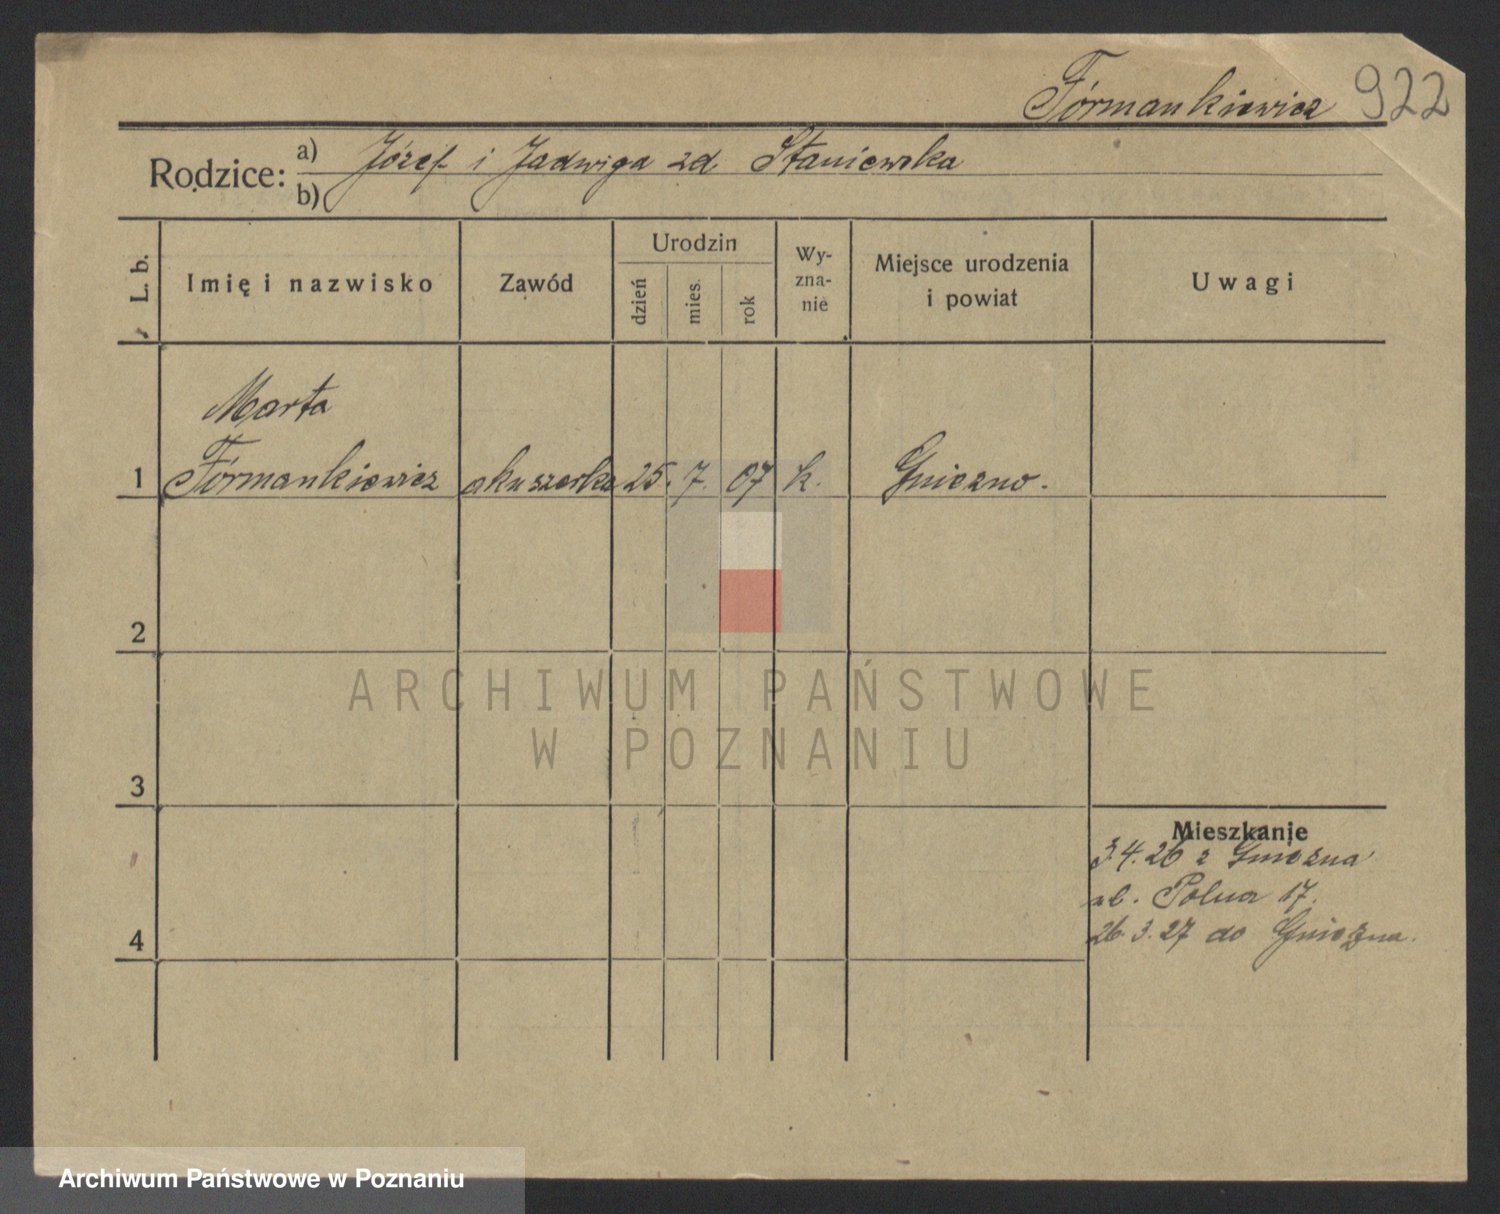 Fórmankiewicz 922
Rodzice: a) Józef i Jadwiga zd. Staniewska
b)
L. b. Imię i nazwisko Zawód Urodzin dzień mies. rok Wyznanie Miejsce urodzenia i powiat Uwagi
Marta
1 Fórmankiewicz akuszerka 25. 7. 07 k. Gniezno.
2
ARCHIWUM PAŃSTWOWE
W POZNANIU
3
Mieszkanie
3.4.26 z Gniezna
ul. Polna 17.
26.3.27 do Gniezna.
4
Archiwum Państwowe w Poznaniu